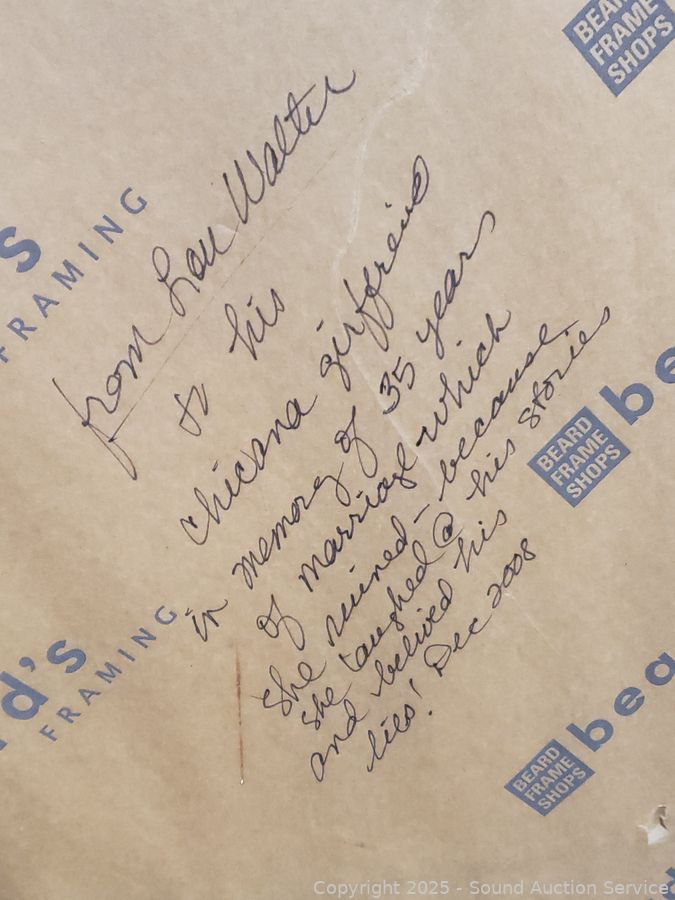 BEARD
FRAME
SHOPS
s
FRAMING
from Lou Walter
to his
chicana girlfreind
in memory of 35 years
of marriage which
she ruined - because
she laughed @ his stories
and belived his
lies! Dec 2008
BEARD
FRAME
SHOPS
be
d's
FRAMING
BEARD
FRAME
SHOPS
bea
Copyright 2025 - Sound Auction Service